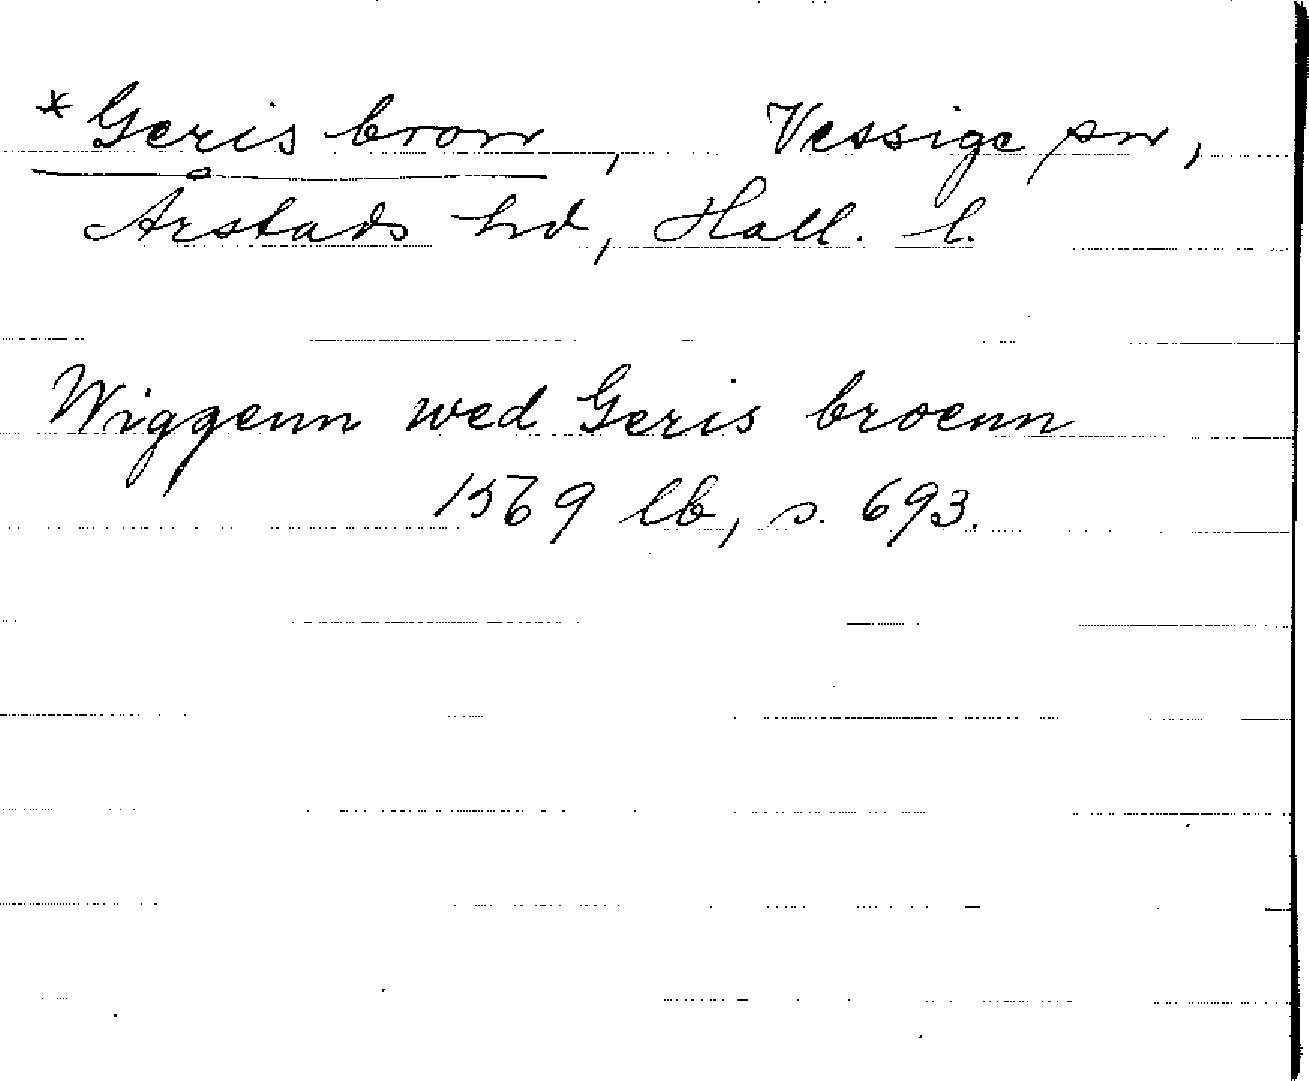 *Geris bron, Vessige sn,
Årstads hd, Hall. l.
Wiggenn wed Geris broenn
1569 lb, s. 693.